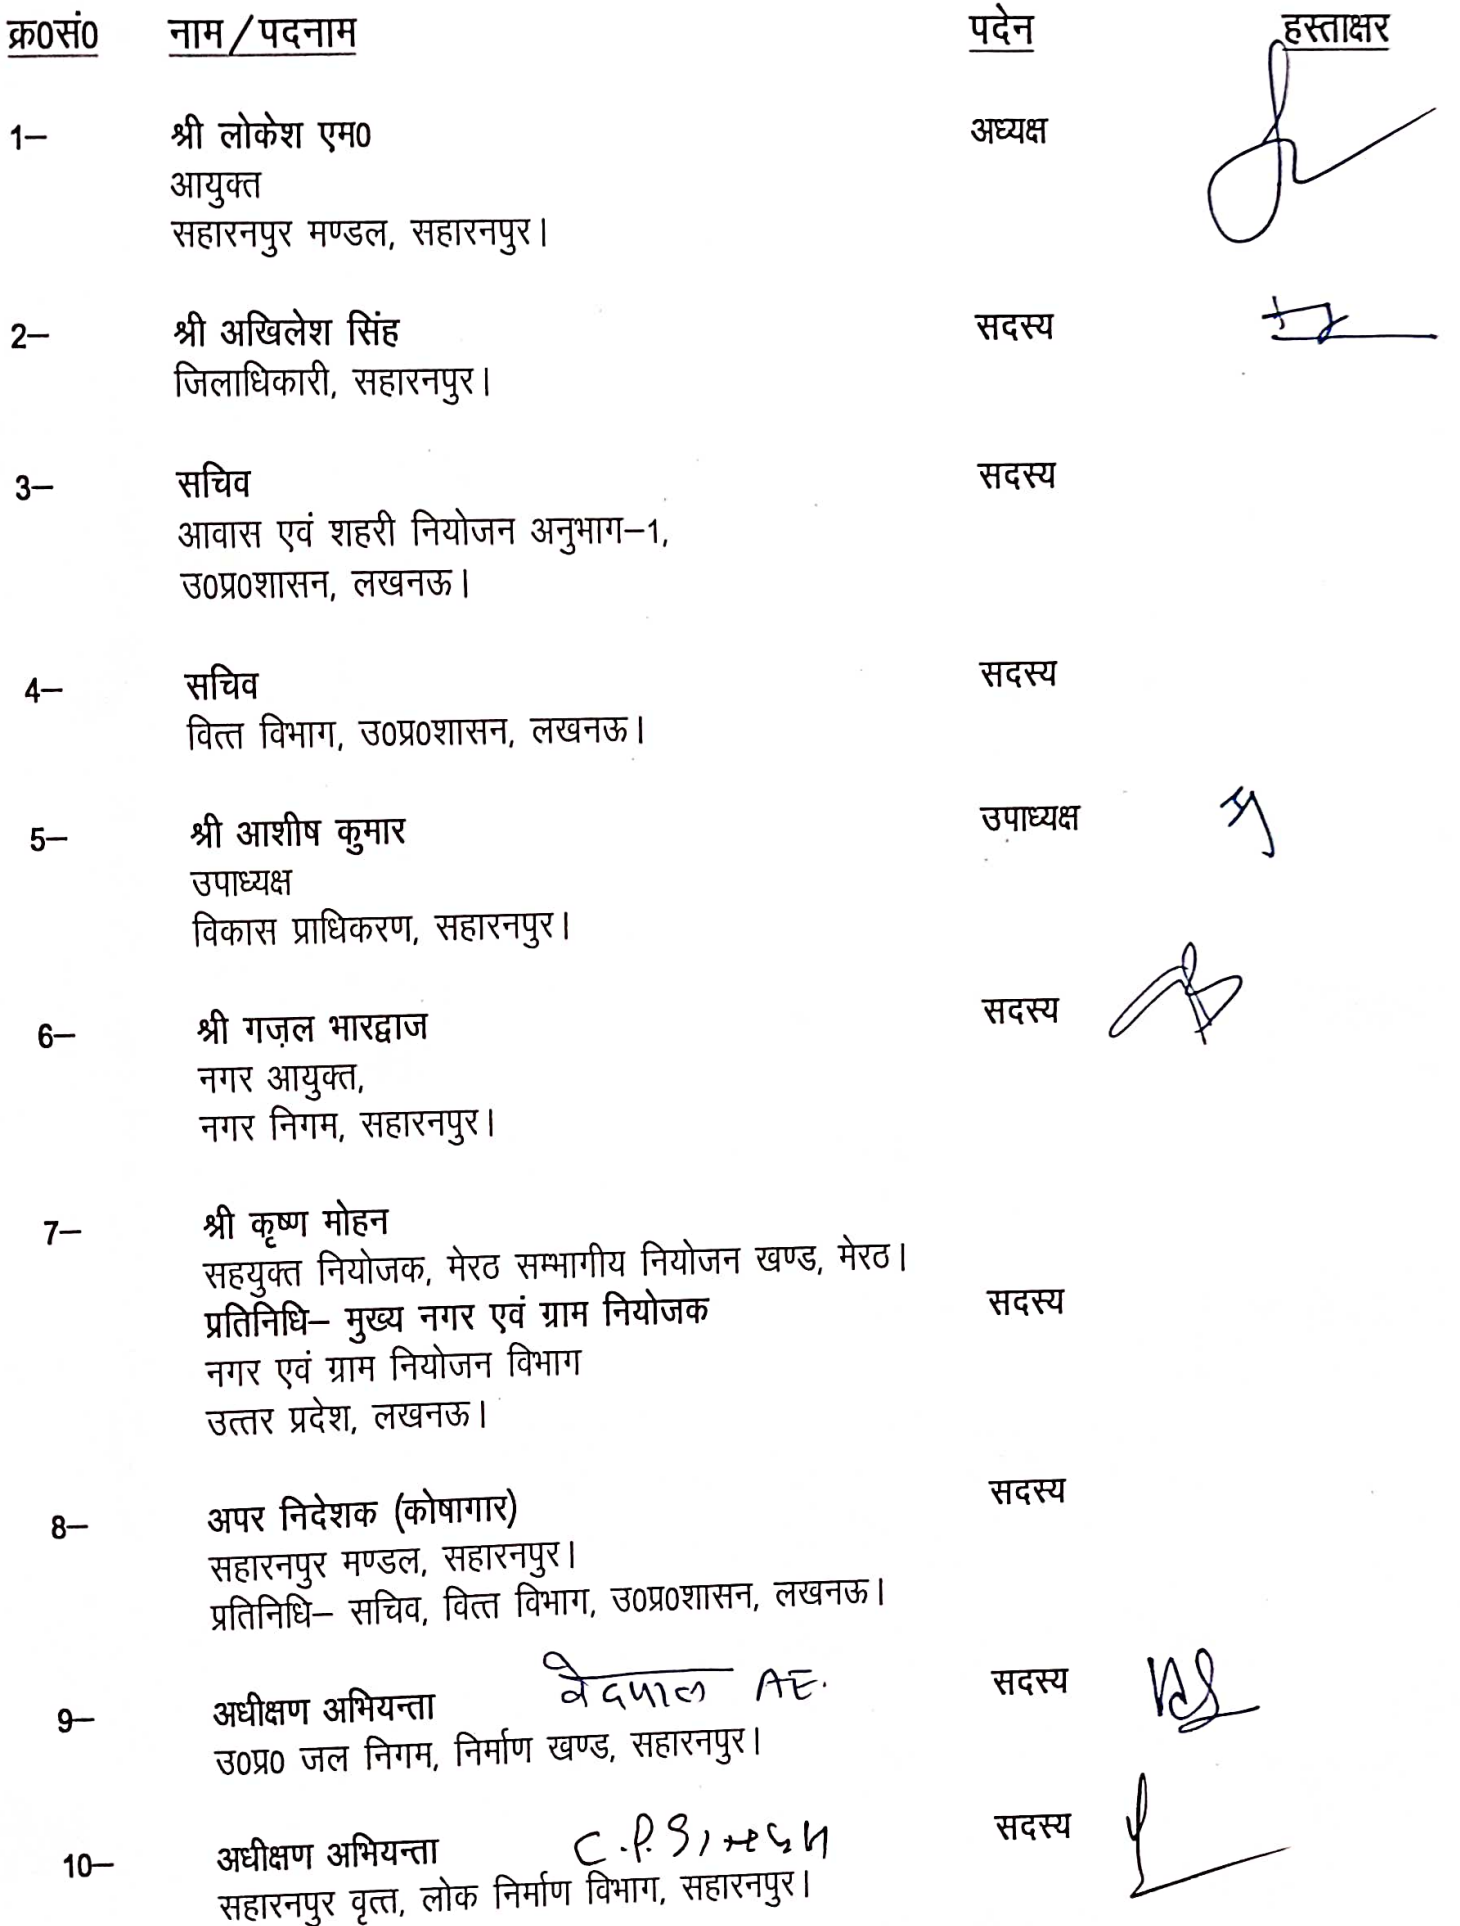 क्र0सं0 नाम/पदनाम पदेन हस्ताक्षर
1– श्री लोकेश एम0 अध्यक्ष
आयुक्त
सहारनपुर मण्डल, सहारनपुर।
2– श्री अखिलेश सिंह सदस्य
जिलाधिकारी, सहारनपुर।
3– सचिव सदस्य
आवास एवं शहरी नियोजन अनुभाग–1,
उ0प्र0शासन, लखनऊ।
4– सचिव सदस्य
वित्त विभाग, उ0प्र0शासन, लखनऊ।
5– श्री आशीष कुमार उपाध्यक्ष
उपाध्यक्ष
विकास प्राधिकरण, सहारनपुर।
6– श्री गज़ल भारद्वाज सदस्य
नगर आयुक्त,
नगर निगम, सहारनपुर।
7– श्री कृष्ण मोहन
सहयुक्त नियोजक, मेरठ सम्भागीय नियोजन खण्ड, मेरठ।
प्रतिनिधि– मुख्य नगर एवं ग्राम नियोजक सदस्य
नगर एवं ग्राम नियोजन विभाग
उत्तर प्रदेश, लखनऊ।
8– अपर निदेशक (कोषागार) सदस्य
सहारनपुर मण्डल, सहारनपुर।
प्रतिनिधि– सचिव, वित्त विभाग, उ0प्र0शासन, लखनऊ।
9– अधीक्षण अभियन्ता वेदपाल AE. सदस्य
उ0प्र0 जल निगम, निर्माण खण्ड, सहारनपुर।
10– अधीक्षण अभियन्ता C.P. सदस्य
सहारनपुर वृत्त, लोक निर्माण विभाग, सहारनपुर।